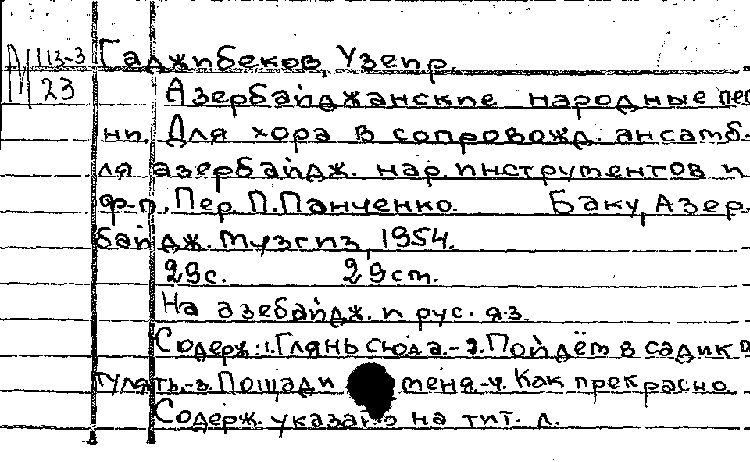 М 113-3 Гаджибеков, Узеир.
23 Азербайджанские народные пес
ни. Для хора в сопровожд. ансамб-
ля азербайдж. нар. инструментов и
ф-п. Пер. П. Панченко. Баку, Азер-
байдж. Музгиз, 1954.
29с. 29см.
На азебайдж. и рус. яз.
Содерж.: 1. Глянь сюда.-2. Пойдём в садик
гулять.-3. Пощади меня.-4. Как прекрасно.
Содерж. указано на тит. л.